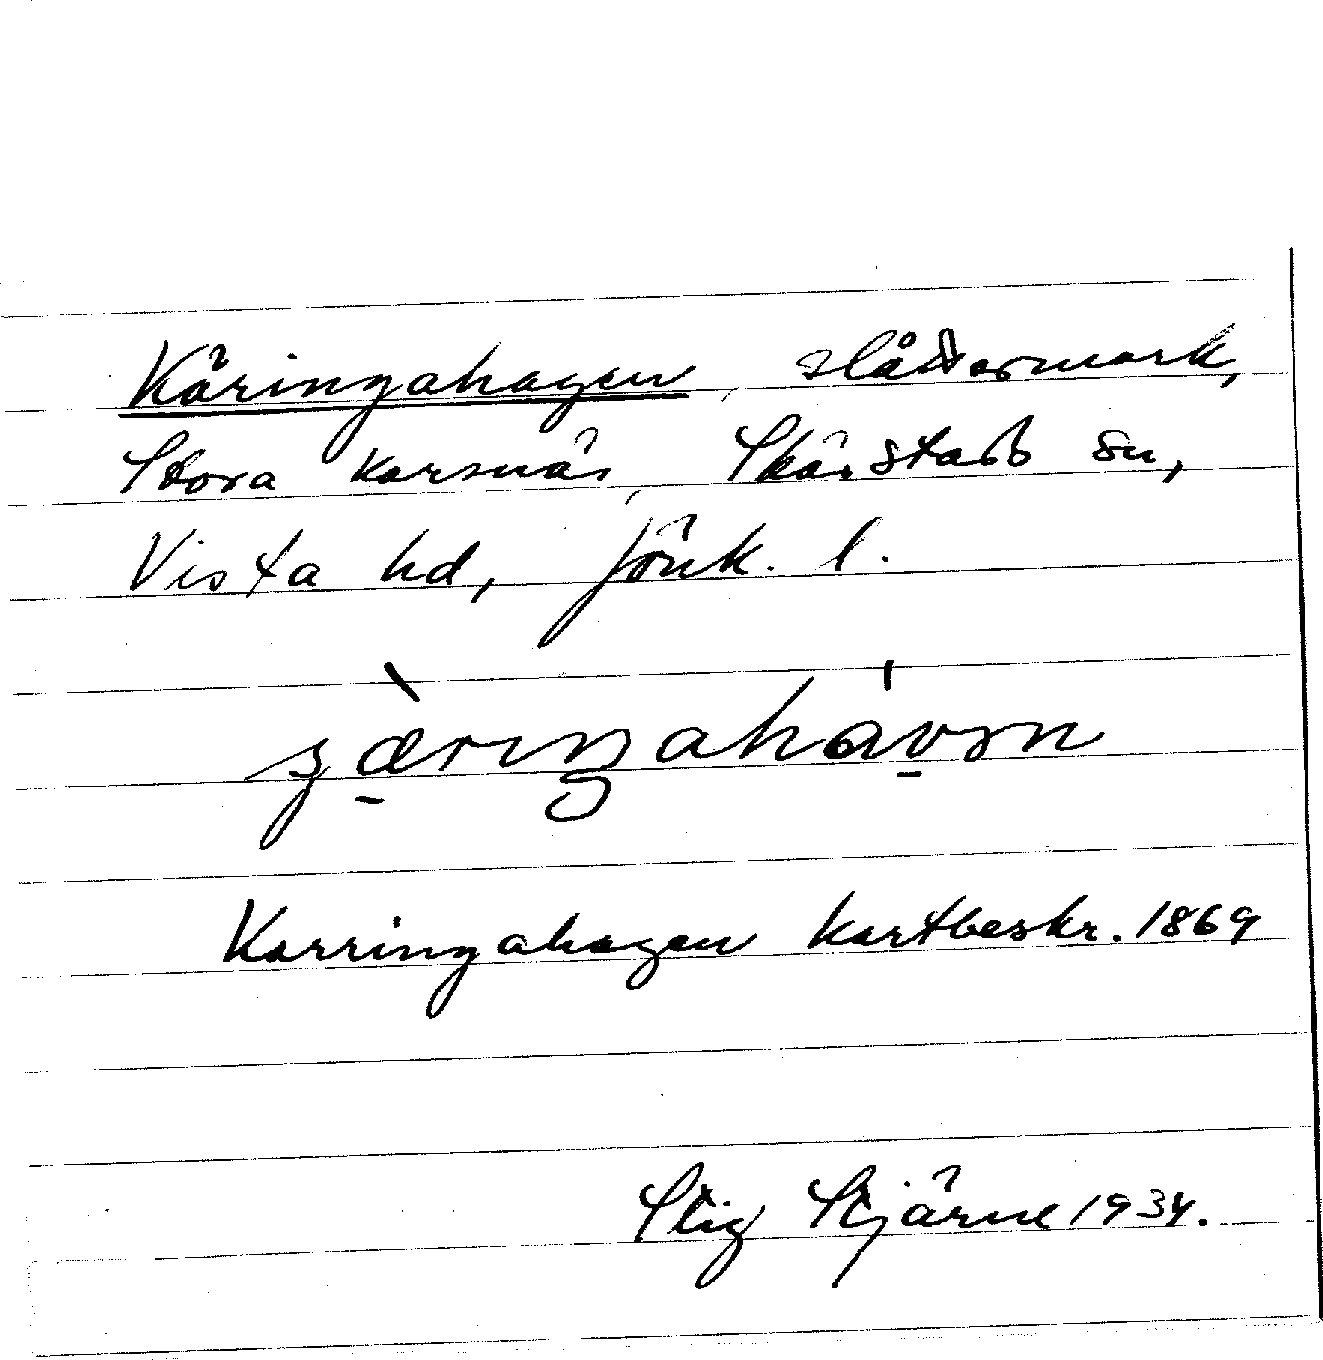 Käringahagen, slåttermark,
Stora Karsnäs, Skärstads sn,
Vista hd, Jönk. l.
Karringahagen kartbeskr. 1869
Stig Stjärne 1934.